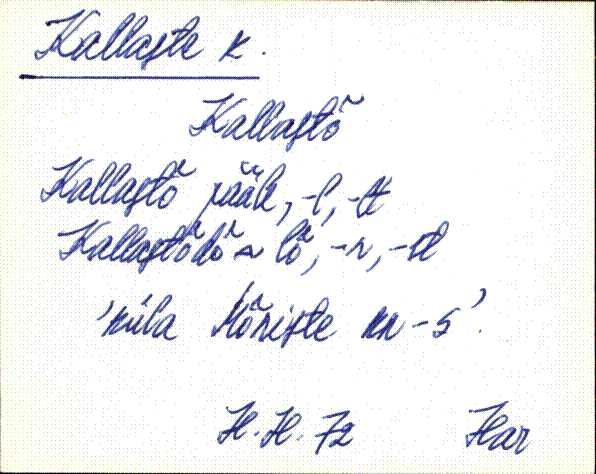 Kallaste k.
Kallastõ
Kallastõ pääle, -l, -lt
Kallastõdõ ~ lõ, -n, -st
'küla Mõniste kn-s'.
H. H. 72 Har